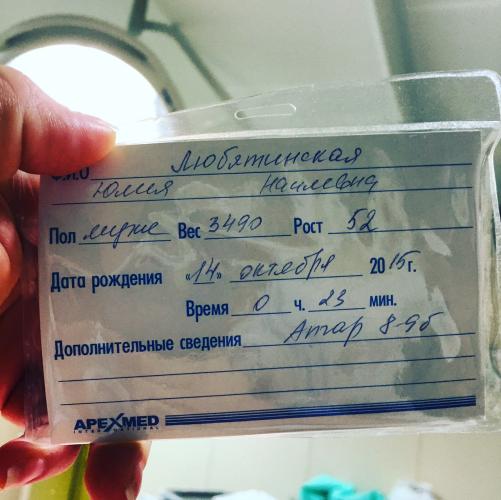 Ф.И.О Любятинская
Юлия Наилевна
Пол муже Вес 3490 Рост 52
Дата рождения «14» октября 2015г.
Время 0 ч. 23 мин.
Дополнительные сведения Апгар 8-9б
APEXMED
INTERNATIONAL